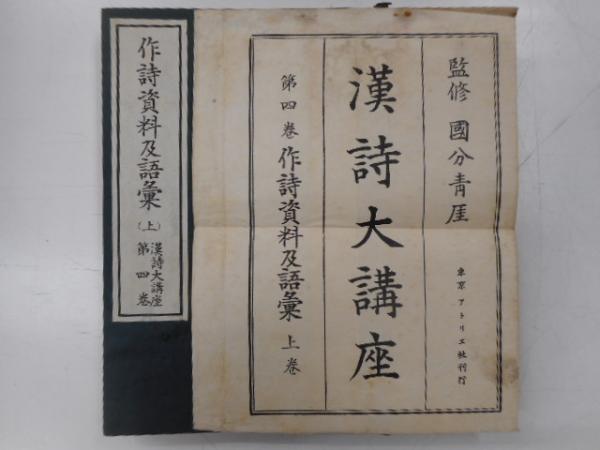 監修 國分青厓
東京 アトリエ社刊行
漢詩大講座
第四卷 作詩資料及語彙 上卷
作詩資料及語彙(上)
漢詩大講座
第四卷